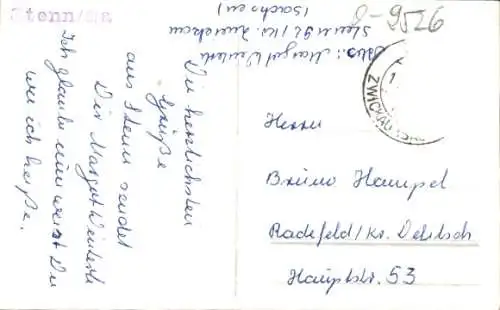 Stenn/Sa
Abs.: Margot
Stenn 92 / Kr. Zwickau
(Sachsen)
Die herzlichsten
Grüße
aus Stenn sendet
Dir Margot
Ich glaube nun weist Du
wer ich heiße.
J-9526
ZWICKAU
Herrn
Bruno Hampel
Radefeld/Kr. Delitsch
Hauptstr. 53